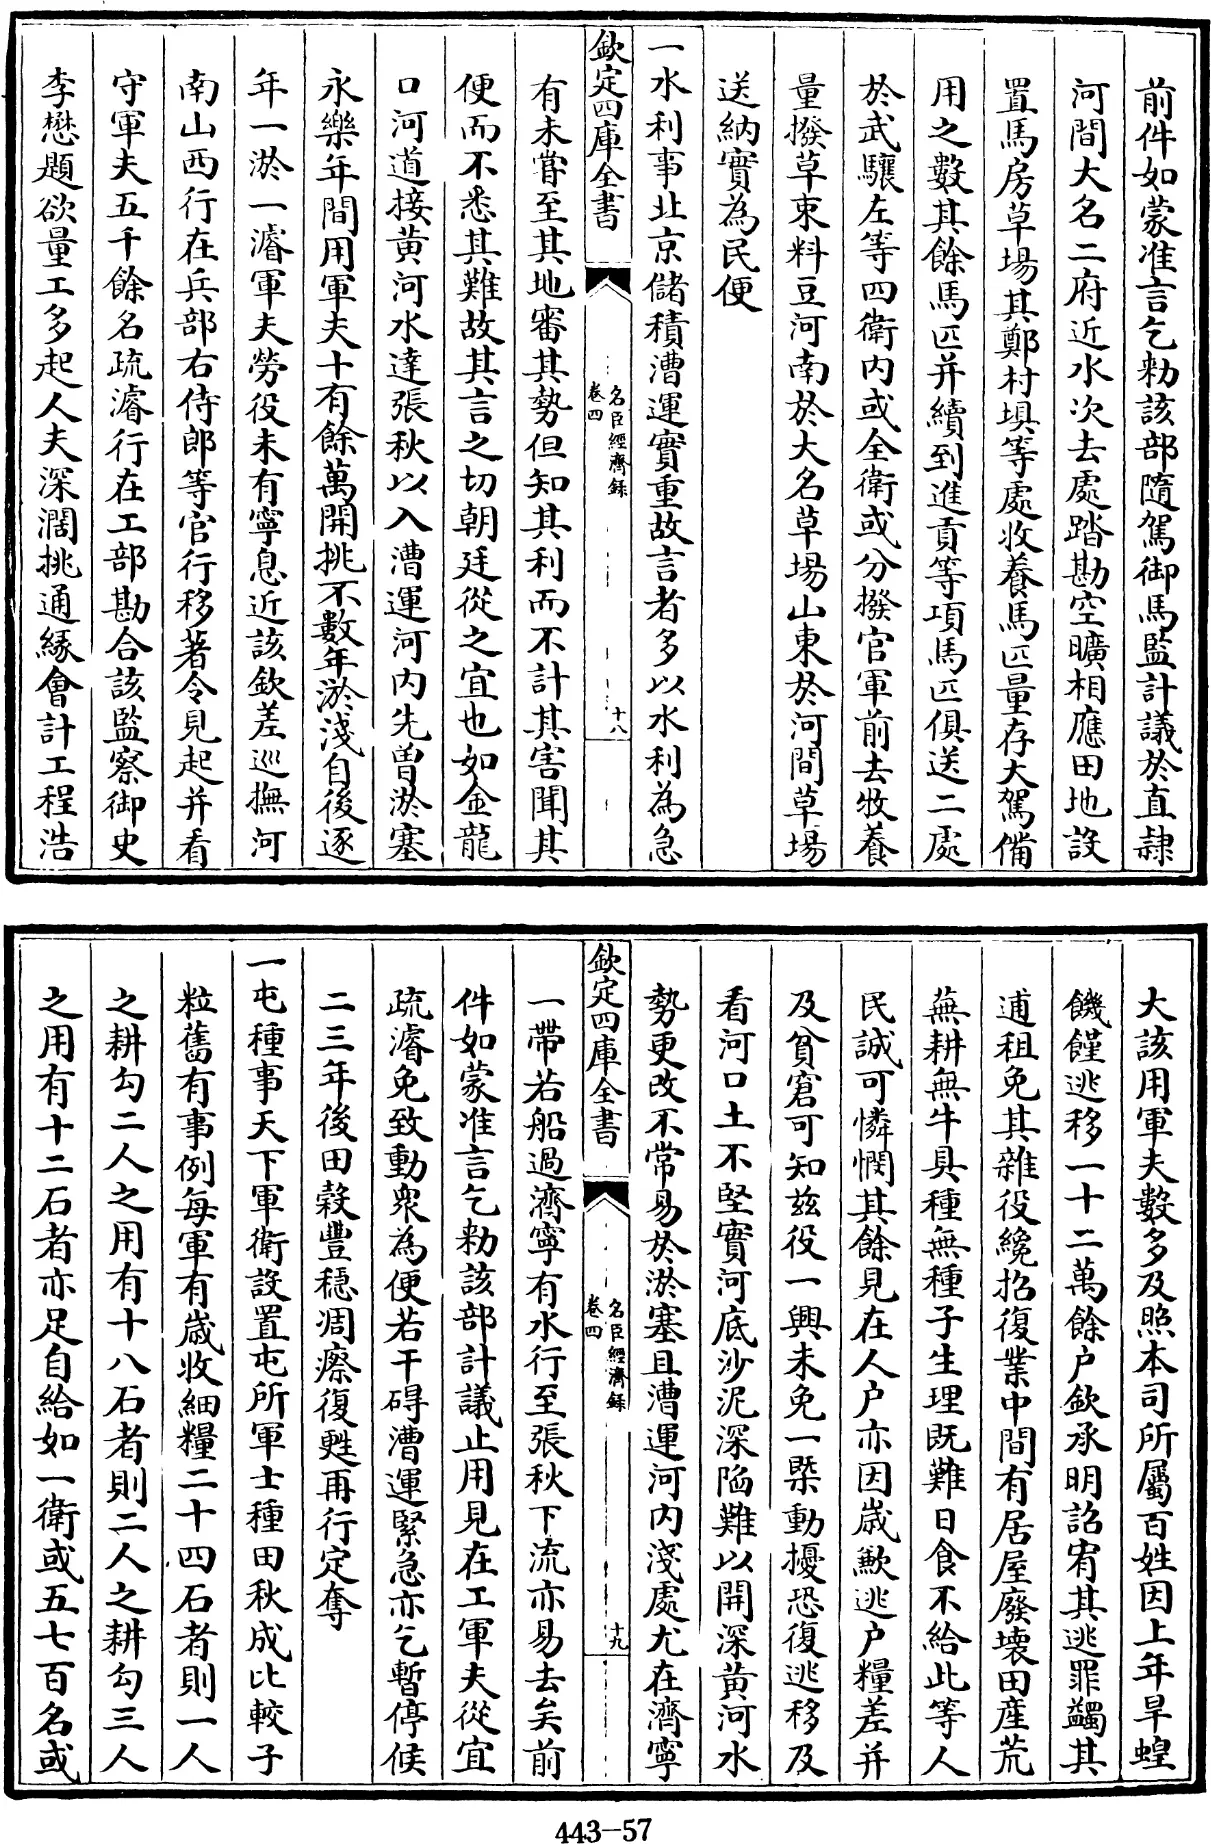 前件如蒙准言乞勑該部隨駕御馬監計議於直隷
河間大名二府近水次去處踏勘空曠相應田地設
置馬房草場其鄭村垻等處收養馬匹量存大駕備
用之數其餘馬匹并續到進貢等項馬匹俱送二處
於武驤左等四衛内或全衛或分撥官軍前去牧養
量撥草束料豆河南於大名草場山東於河間草場
送納實為民便
一水利事北京儲積漕運實重故言者多以水利為急
欽定四庫全書
名臣經濟錄
卷四
十八
有未嘗至其地審其勢但知其利而不計其害聞其
便而不悉其難故其言之切朝廷從之宜也如金龍
口河道接黄河水達張秋以入漕運河内先曽淤塞
永樂年間用軍夫十有餘萬開挑不數年淤淺自後逐
年一淤一濬軍夫勞役未有寧息近該欽差巡撫河
南山西行在兵部右侍郎等官行移著令見起并看
守軍夫五千餘名疏濬行在工部勘合該監察御史
李懋題欲量工多起人夫深濶挑通縁會計工程浩
大該用軍夫數多及照本司所屬百姓因上年旱蝗
饑饉逃移一十二萬餘户欽承明詔宥其逃罪蠲其
逋租免其雜役纔招復業中間有居屋廢壊田産荒
蕪耕無牛具種無種子生理既難日食不給此等人
民誠可憐憫其餘見在人户亦因歲歉逃户糧差并
及貧窘可知兹役一興未免一槩動擾恐復逃移及
看河口土不堅實河底沙泥深陷難以開深黄河水
勢更改不常易於淤塞且漕運河内淺處尤在濟寧
欽定四庫全書
名臣經濟錄
卷四
十九
一帶若船過濟寧有水行至張秋下流亦易去矣前
件如蒙准言乞勑該部計議止用見在工軍夫從宜
疏濬免致動衆為便若干碍漕運緊急亦乞暫停候
二三年後田榖豐穩凋瘵復甦再行定奪
一屯種事天下軍衛設置屯所軍士種田秋成比較子
粒舊有事例每軍有歲收細糧二十四石者則一人
之耕勾二人之用有十八石者則二人之耕勾三人
之用有十二石者亦足自給如一衛或五七百名或
443—57